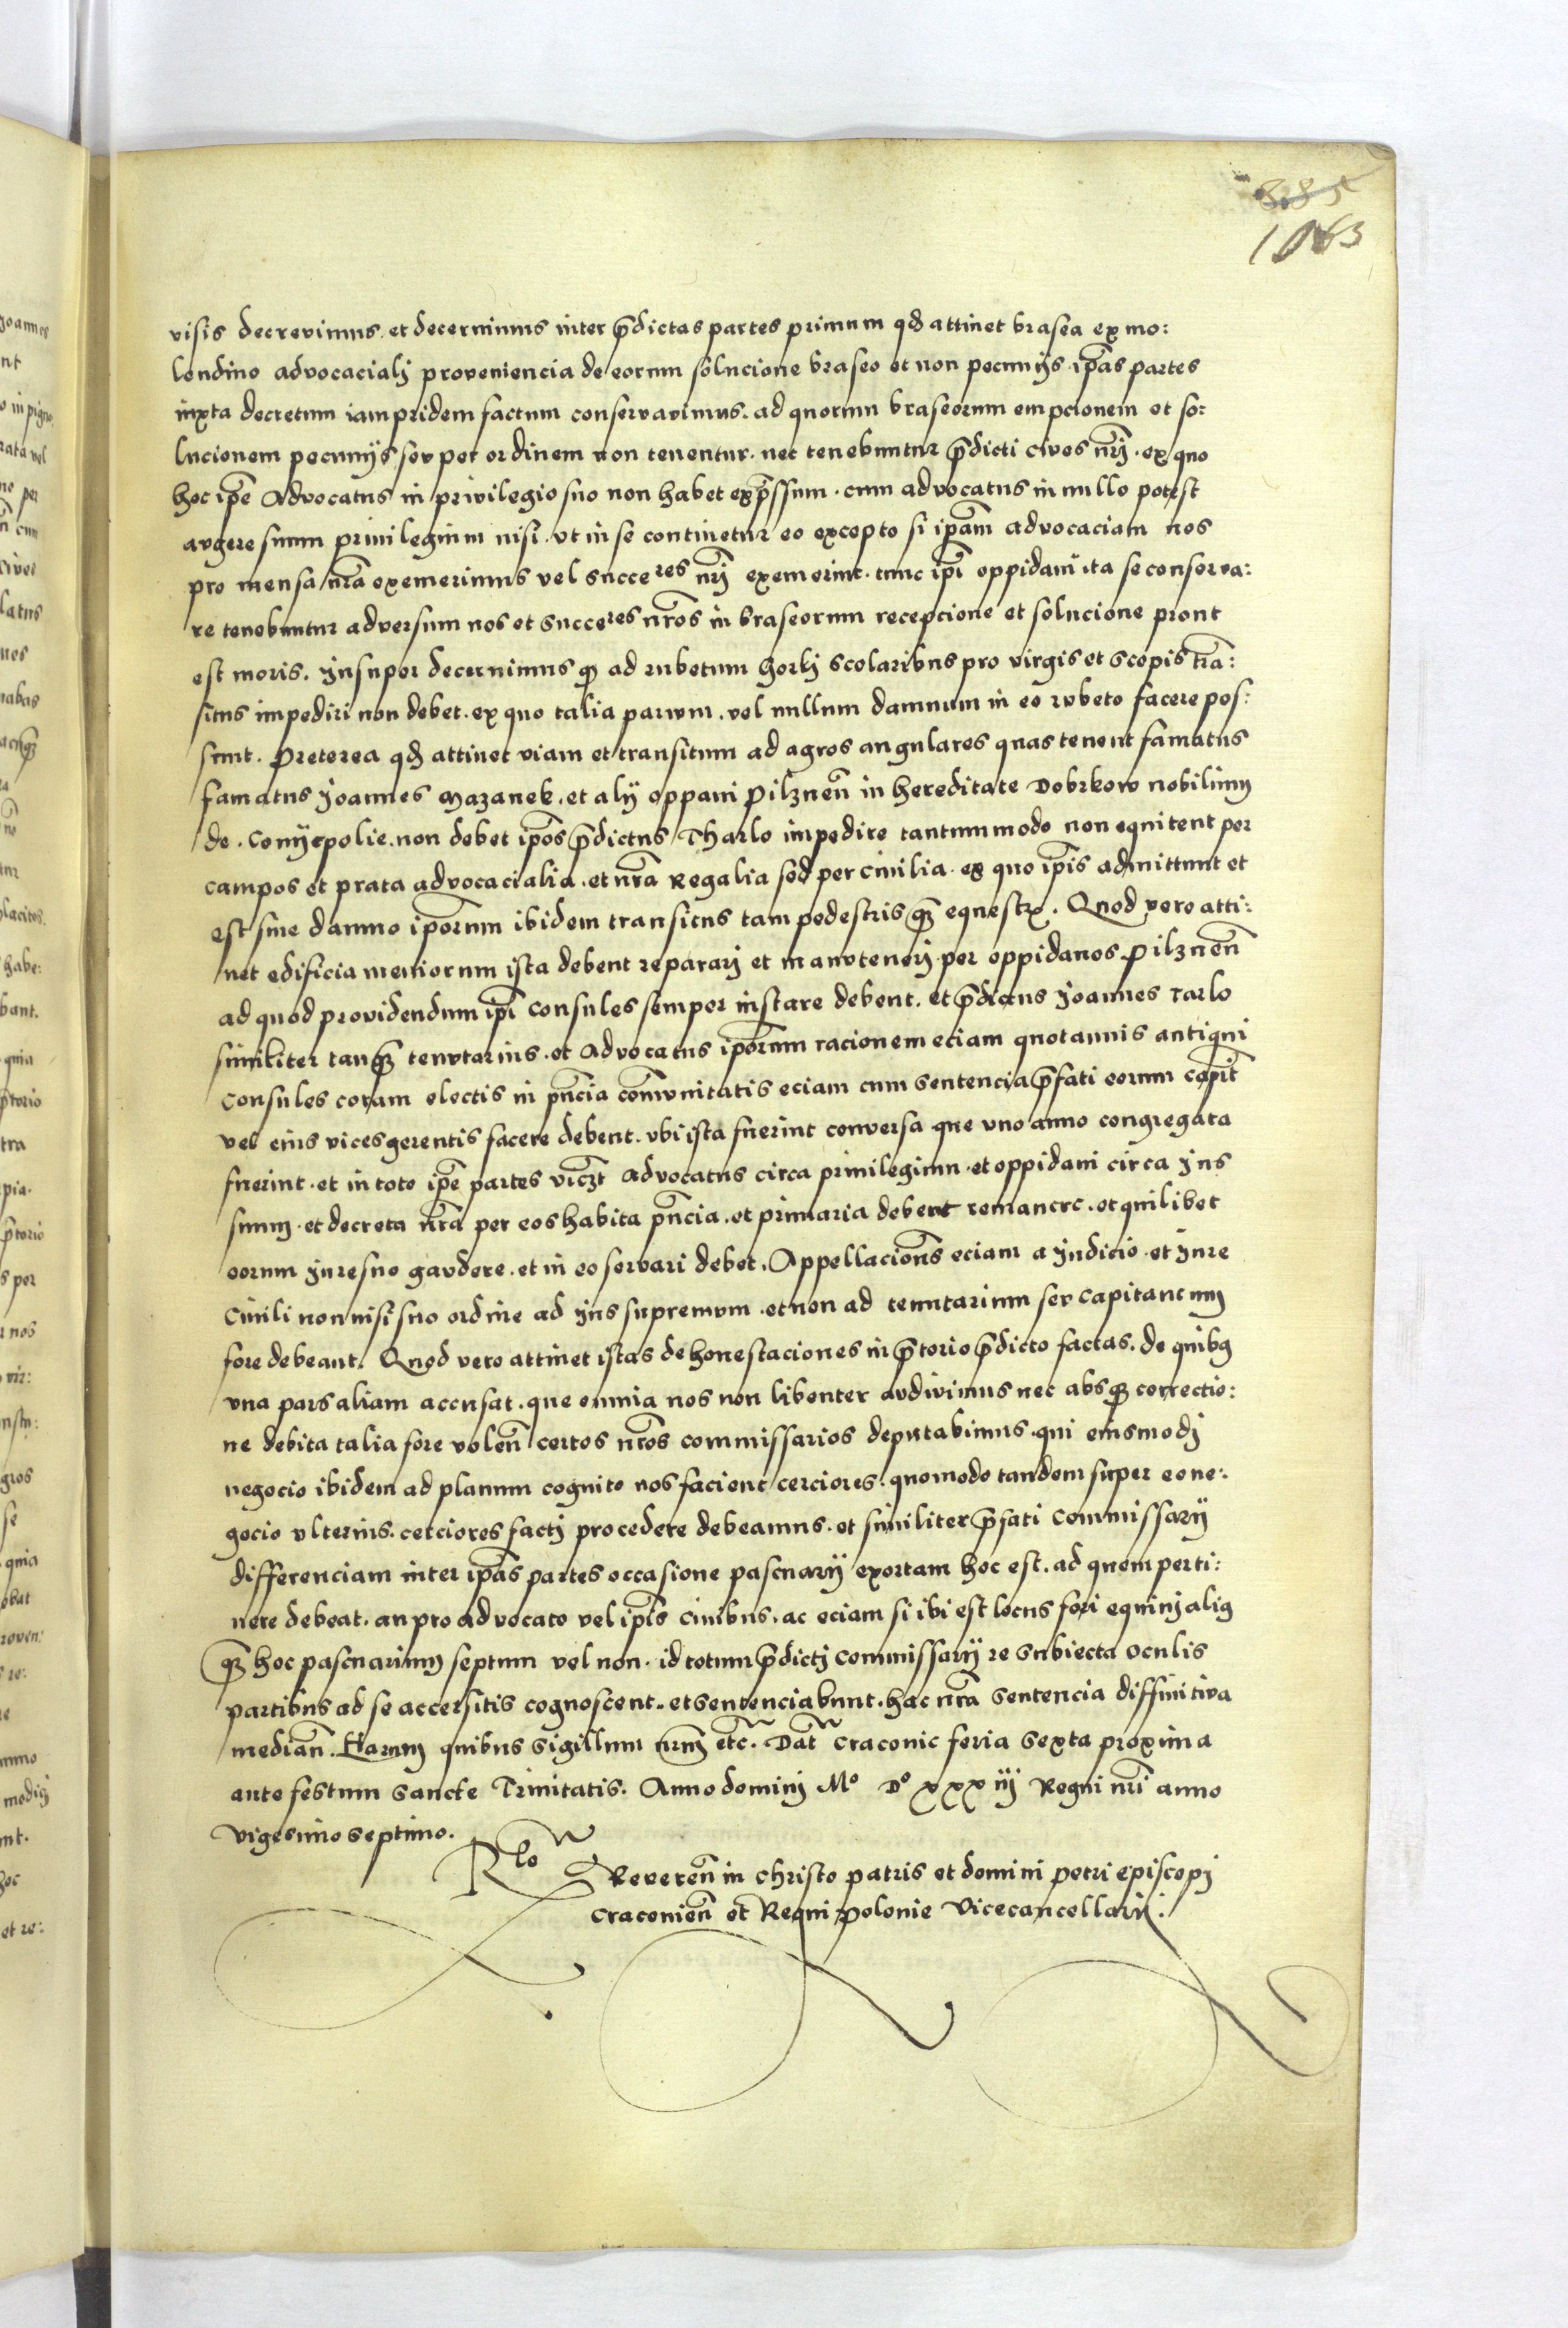 385
1063
visis decrevimus. et decernimus inter p̄dictas partes primum qđ attinet brasea ex mo:
lendino advocacialj proveniencia de eorum solucione braseo et non pecunijs ip̄as partes
iuxta decretum iampridem factum conservavimus. ad quorum braseorum empcionem et so:
lucionem pecunijs seu per ordinem non tenentur. nec tenebuntur p̄dicti cives nr̄j. ex quo
hoc ip̄e Advocatus in privilegio suo non habet exp̄ssum. cum advocatus in nullo potest
augere suum privilegium nisi. ut in se continetur eo excepto si ip̄am advocaciam nos
pro mensa nr̄a exemerimus vel succeres nr̄j exemerint. tunc ip̄i oppidani ita se conserva:
re tenebuntur adversum nos et succeres nr̄os in braseorum recepcione et solucione prout
est moris. Insuper decernimus qȝ ad rubetum gorkj scolaribus pro virgis et scopis trā:
situs impediri non debet. ex quo talia parvum. vel nullum damnum in eo rubeto facere pos:
sunt. Preterea qđ attinet viam et transitum ad agros angulares quas tenent famatus
famatus Joannes Mazanek. et alij oppani Pilznen̄ in hereditate Dobrkow nobilium
de. Conyecpolie. non debet ip̄os p̄dictus Tharlo impedire tantummodo non equitent per
campos et prata advocacialia. et nr̄a Regalia sed per civilia. ex quo ip̄is admittunt et
est sine damno ip̄orum ibidem transitus tam pedestris qȝ equestr. Quod vero atti:
net edificia meniorum ista debent reparari et manutenerj per oppidanos Pilznen̄
ad quod providendum ip̄i consules semper instare debent. et p̄dictus Joannes Tarlo
similiter tanqȝ tenutarius. et Advocatus ip̄orum racionem eciam quotannis antiqui
consules coram electis in pn̄cia com̄unitatis eciam cum sentencia p̄fati eorum capit̄
vel eius vices gerentis facere debent. ubi ista fuerint conversa que uno anno congregata
fuerint. et in toto ip̄e partes viczt Advocatus circa privilegium. et oppidani circa Jus
suum. et decreta nr̄a per eos habita pn̄cia. et primaria debent remanere. et quilibet
eorum Jure suo gaudere. et in eo servari debet. Appellacion̄s eciam a Judicio. et Jure
civili non nisi suo ordine ad Jus supremum. et non ad tenutarium seu capitaneum
fore debeant. Quod vero attinet istas dehonestaciones in p̄torio p̄dicto factas. de quibȝ
una pars aliam accusat. que omnia nos non libenter audivimus nec absqȝ correctio:
ne debita talia fore volen̄ certos nr̄os commissarios deputabimus. qui eiusmodj
negocio ibidem ad planum cognito nos facient cerciores. quomodo tandem super eo ne:
gocio ulterius. cerciores factj procedere debeamus. et similiter p̄fati commissarij
differenciam inter ip̄as partes occasione pascuarij exortam hoc est. ad quem perti:
nere debeat. an pro advocato vel ip̄is civibus. ac eciam si ibi est locus fori equinj aliq
qȝ hoc pascuarium septum vel non. id totum p̄dictj commissarij re subiecta oculis
partibus ad se accersitis cognoscent. et sentenciabunt. hac nr̄a sentencia diffinitiva
median̄. Harum quibus sigillum nr̄m etc̄. Dat̄ Craconie feria sexta proxima
ante festum sancte Trinitatis. Anno dominj Mo Do xxx iij Regni nr̄i anno
vigesimo septimo.
Rlo Reveren̄ in christo patris et domini petri episcopj
Craconien̄ et Regni polonie Vicecancellarij.